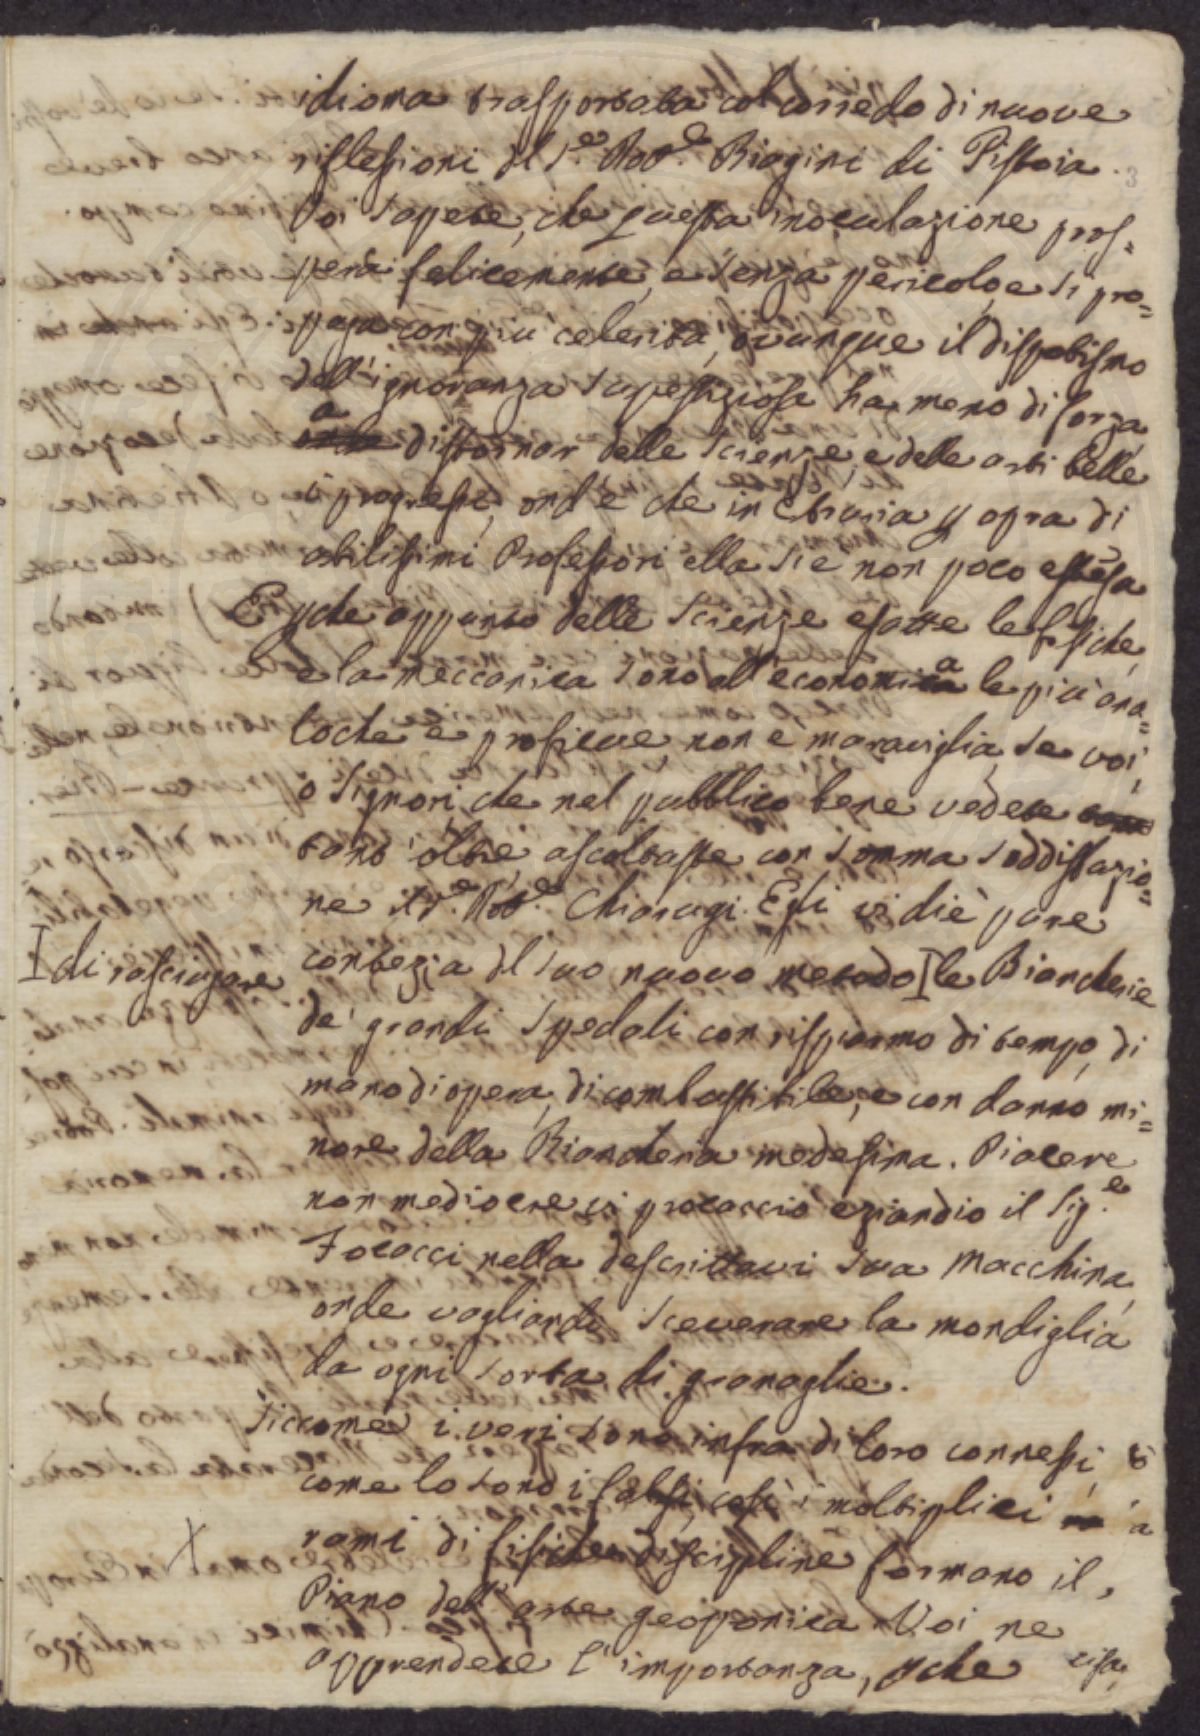 idioma trasportata col corredo di nuove
riflessioni del S.e Dot.e Biagini di Pistoia.
Voi sapete, che questa inoculazione pros=
però felicemente, e senza pericolo, e si pro=
paga con più celerità, ovunque il dispotismo
dell'ignoranza superstiziosa ha meno di forza
a distornar delle scienze, e delle arti belle
i progressi, ond'è che in Etruria p opra di
abilissimi Professori ella si è non poco estesa
E pchè appunto delle scienze esatte le fisiche,
e la meccanica sono all'economica le più ana=
loche e proficue, non è maraviglia, se voi,
o Signori, che nel pubblico bene vedete
tant'oltre, ascoltaste con somma soddisfazio=
ne il S.e Dot.e Chiarugi. Egli vi diè pure
contezza del suo nuovo metodo [le Biancherie
[di rasciugare
de' grandi Spedali con risparmo di tempo, di
mano di opera, di combustibile, e con danno mi=
nore della Biancheria medesima. Piacere
non mediocre vi procacciò eziandio il Sig.e
Focacci nella descrittavi sua Macchina,
onde vagliando sceverare la mondiglia
da ogni sorta di granaglie.
Siccome i veri sono infra di loro connessi,
come lo sono i falsi, così i moltiplici
rami di fisiche discipline formano il
Piano dell'arte geoponica. Voi ne
apprendete l'importanza, pchè